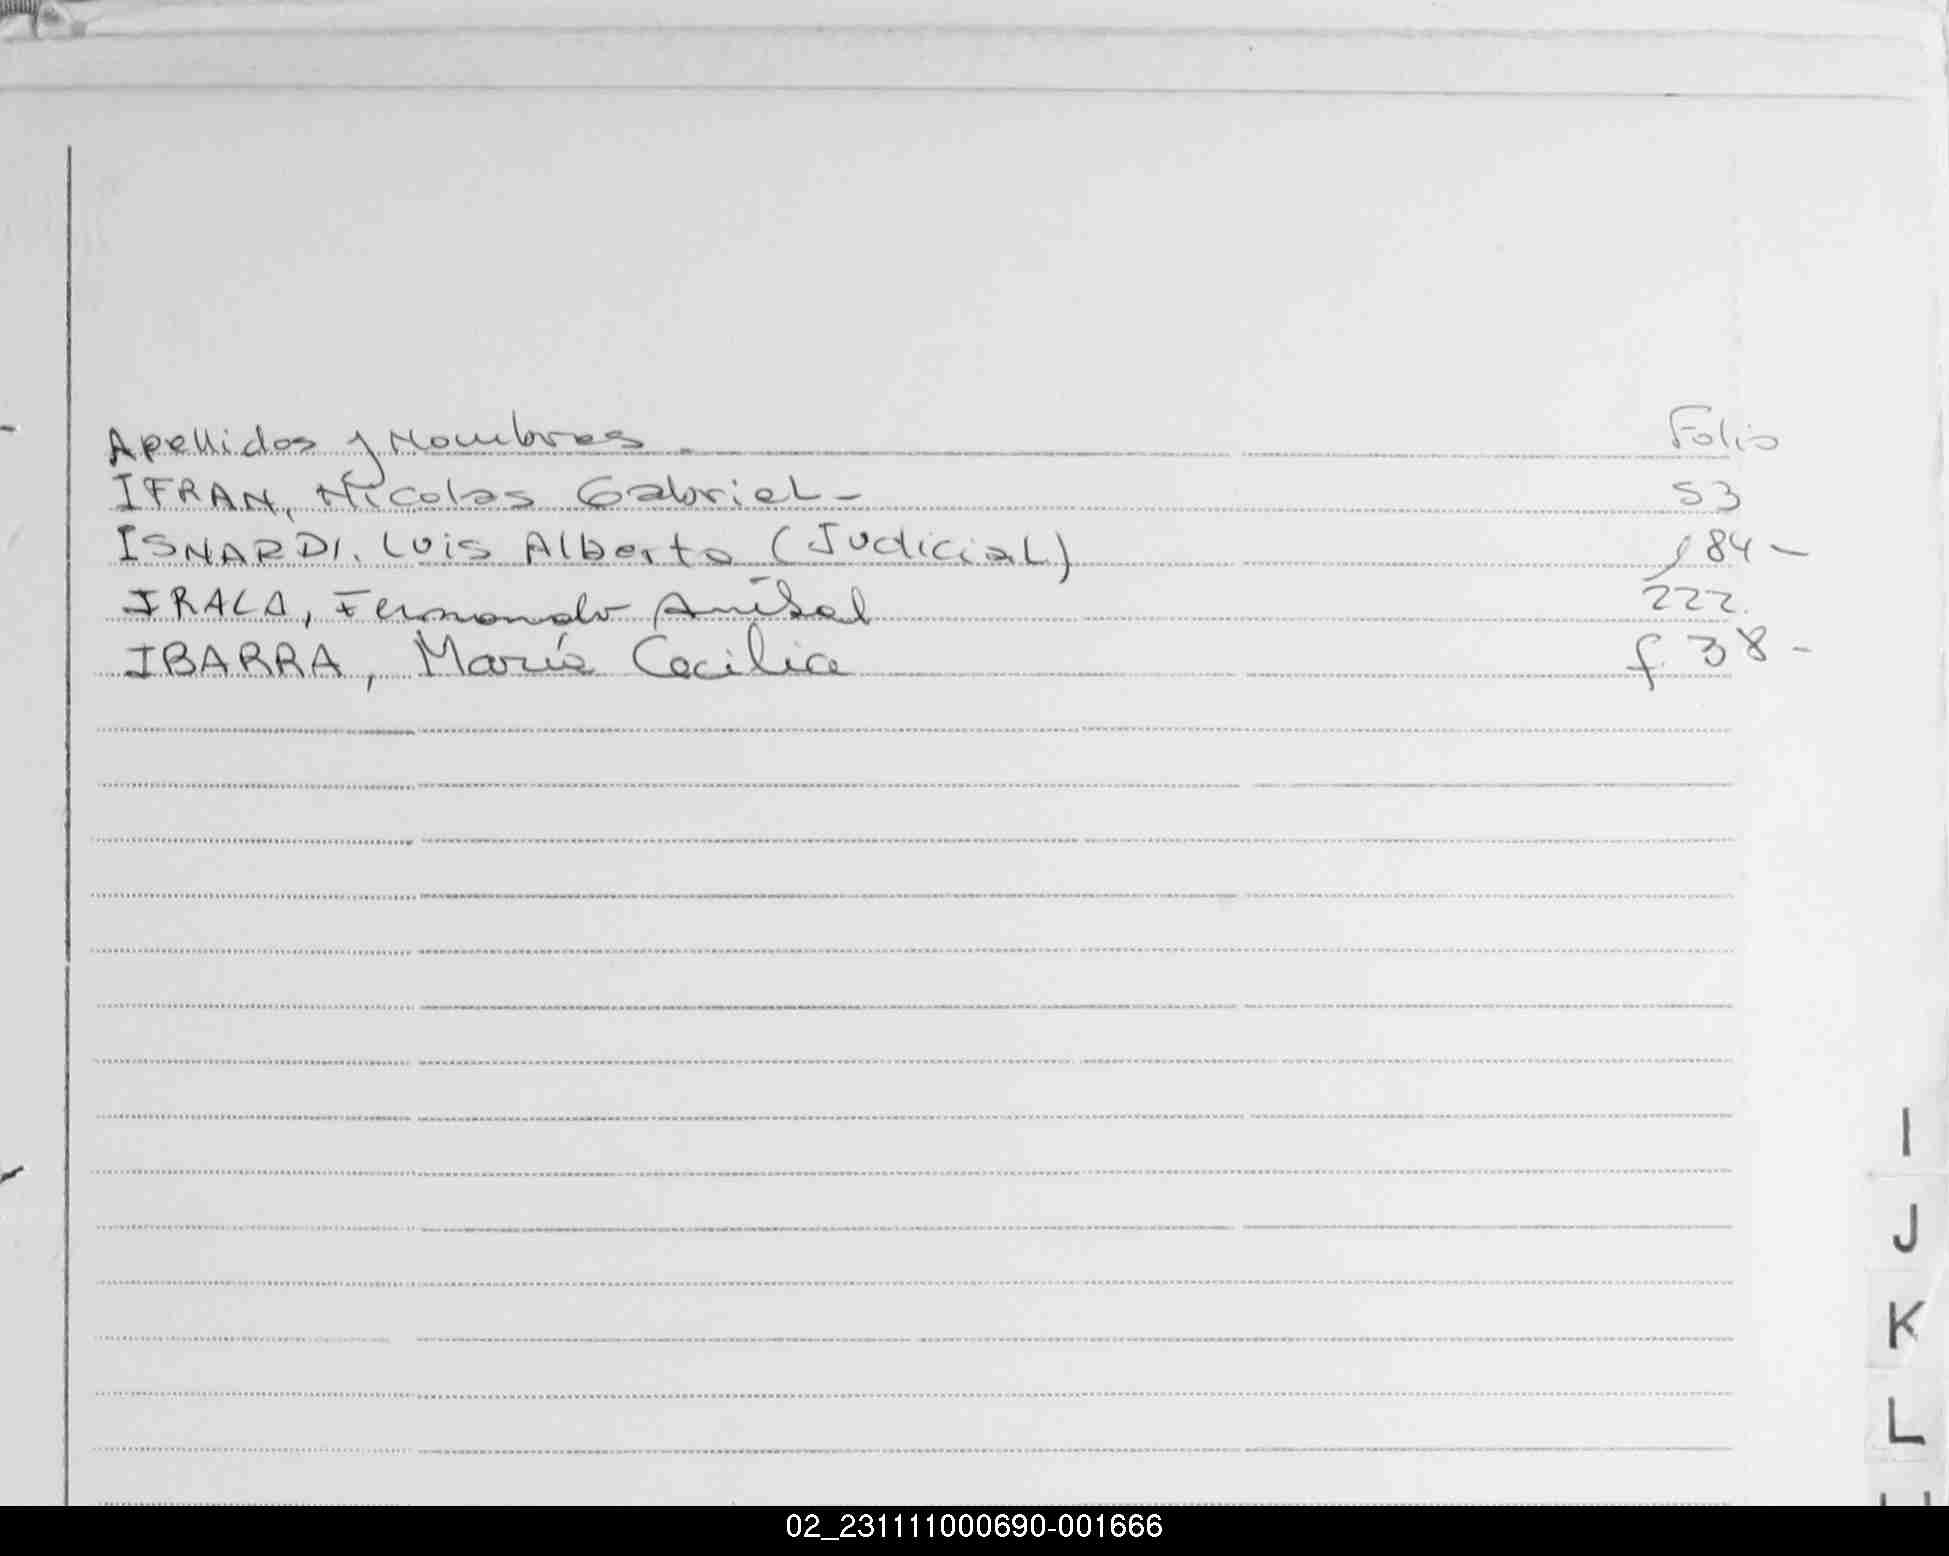 Apellidos y Nombres. Folio
IFRAN, Nicolas Gabriel - 53
ISNARDI. Luis Alberto (Judicial) 184 -
IRALA, Fernando Aníbal 222.
IBARRA, María Cecilia f. 38 -
I
J
K
L
02_231111000690-001666